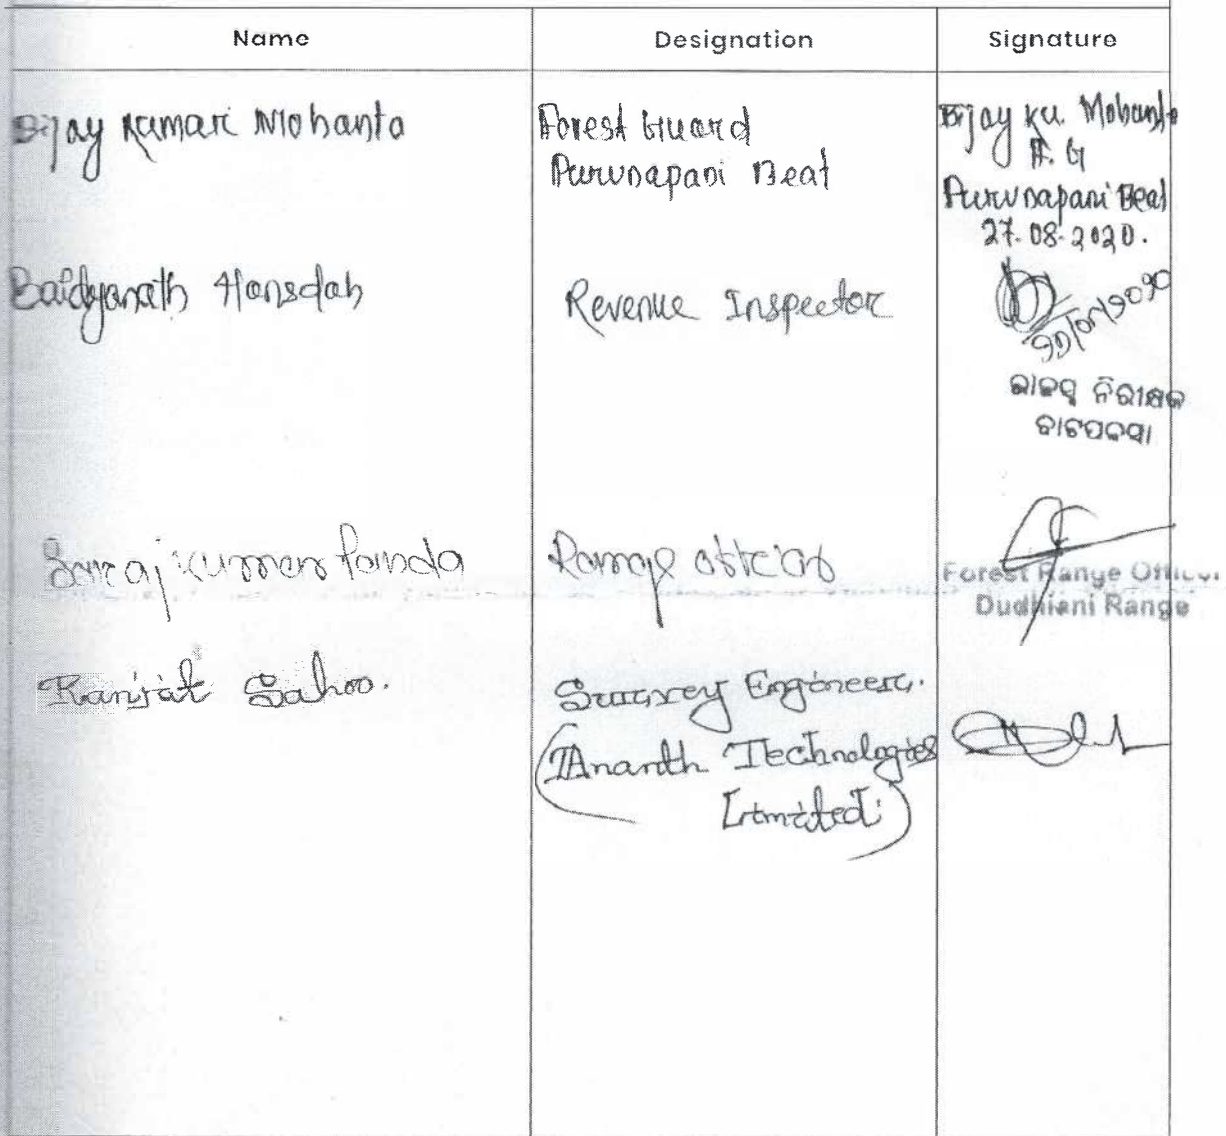 Name Designation Signature
Bijay Kumar Mohanta
Forest Guard
Purunapani Beat
Bijay Ku. Mohanta
F. G
Purunapani Beat
27.08.2020.
Baidyanath Hansdah
Revenue Inspector
ରାଜସ୍ୱ ନିରୀକ୍ଷକ
Saroj Kumar Panda
Range Officer
Forest Range Officer
Dudhiani Range
Ranjit Sahoo.
Survey Engineer.
(Ananth Technologies
Limited)